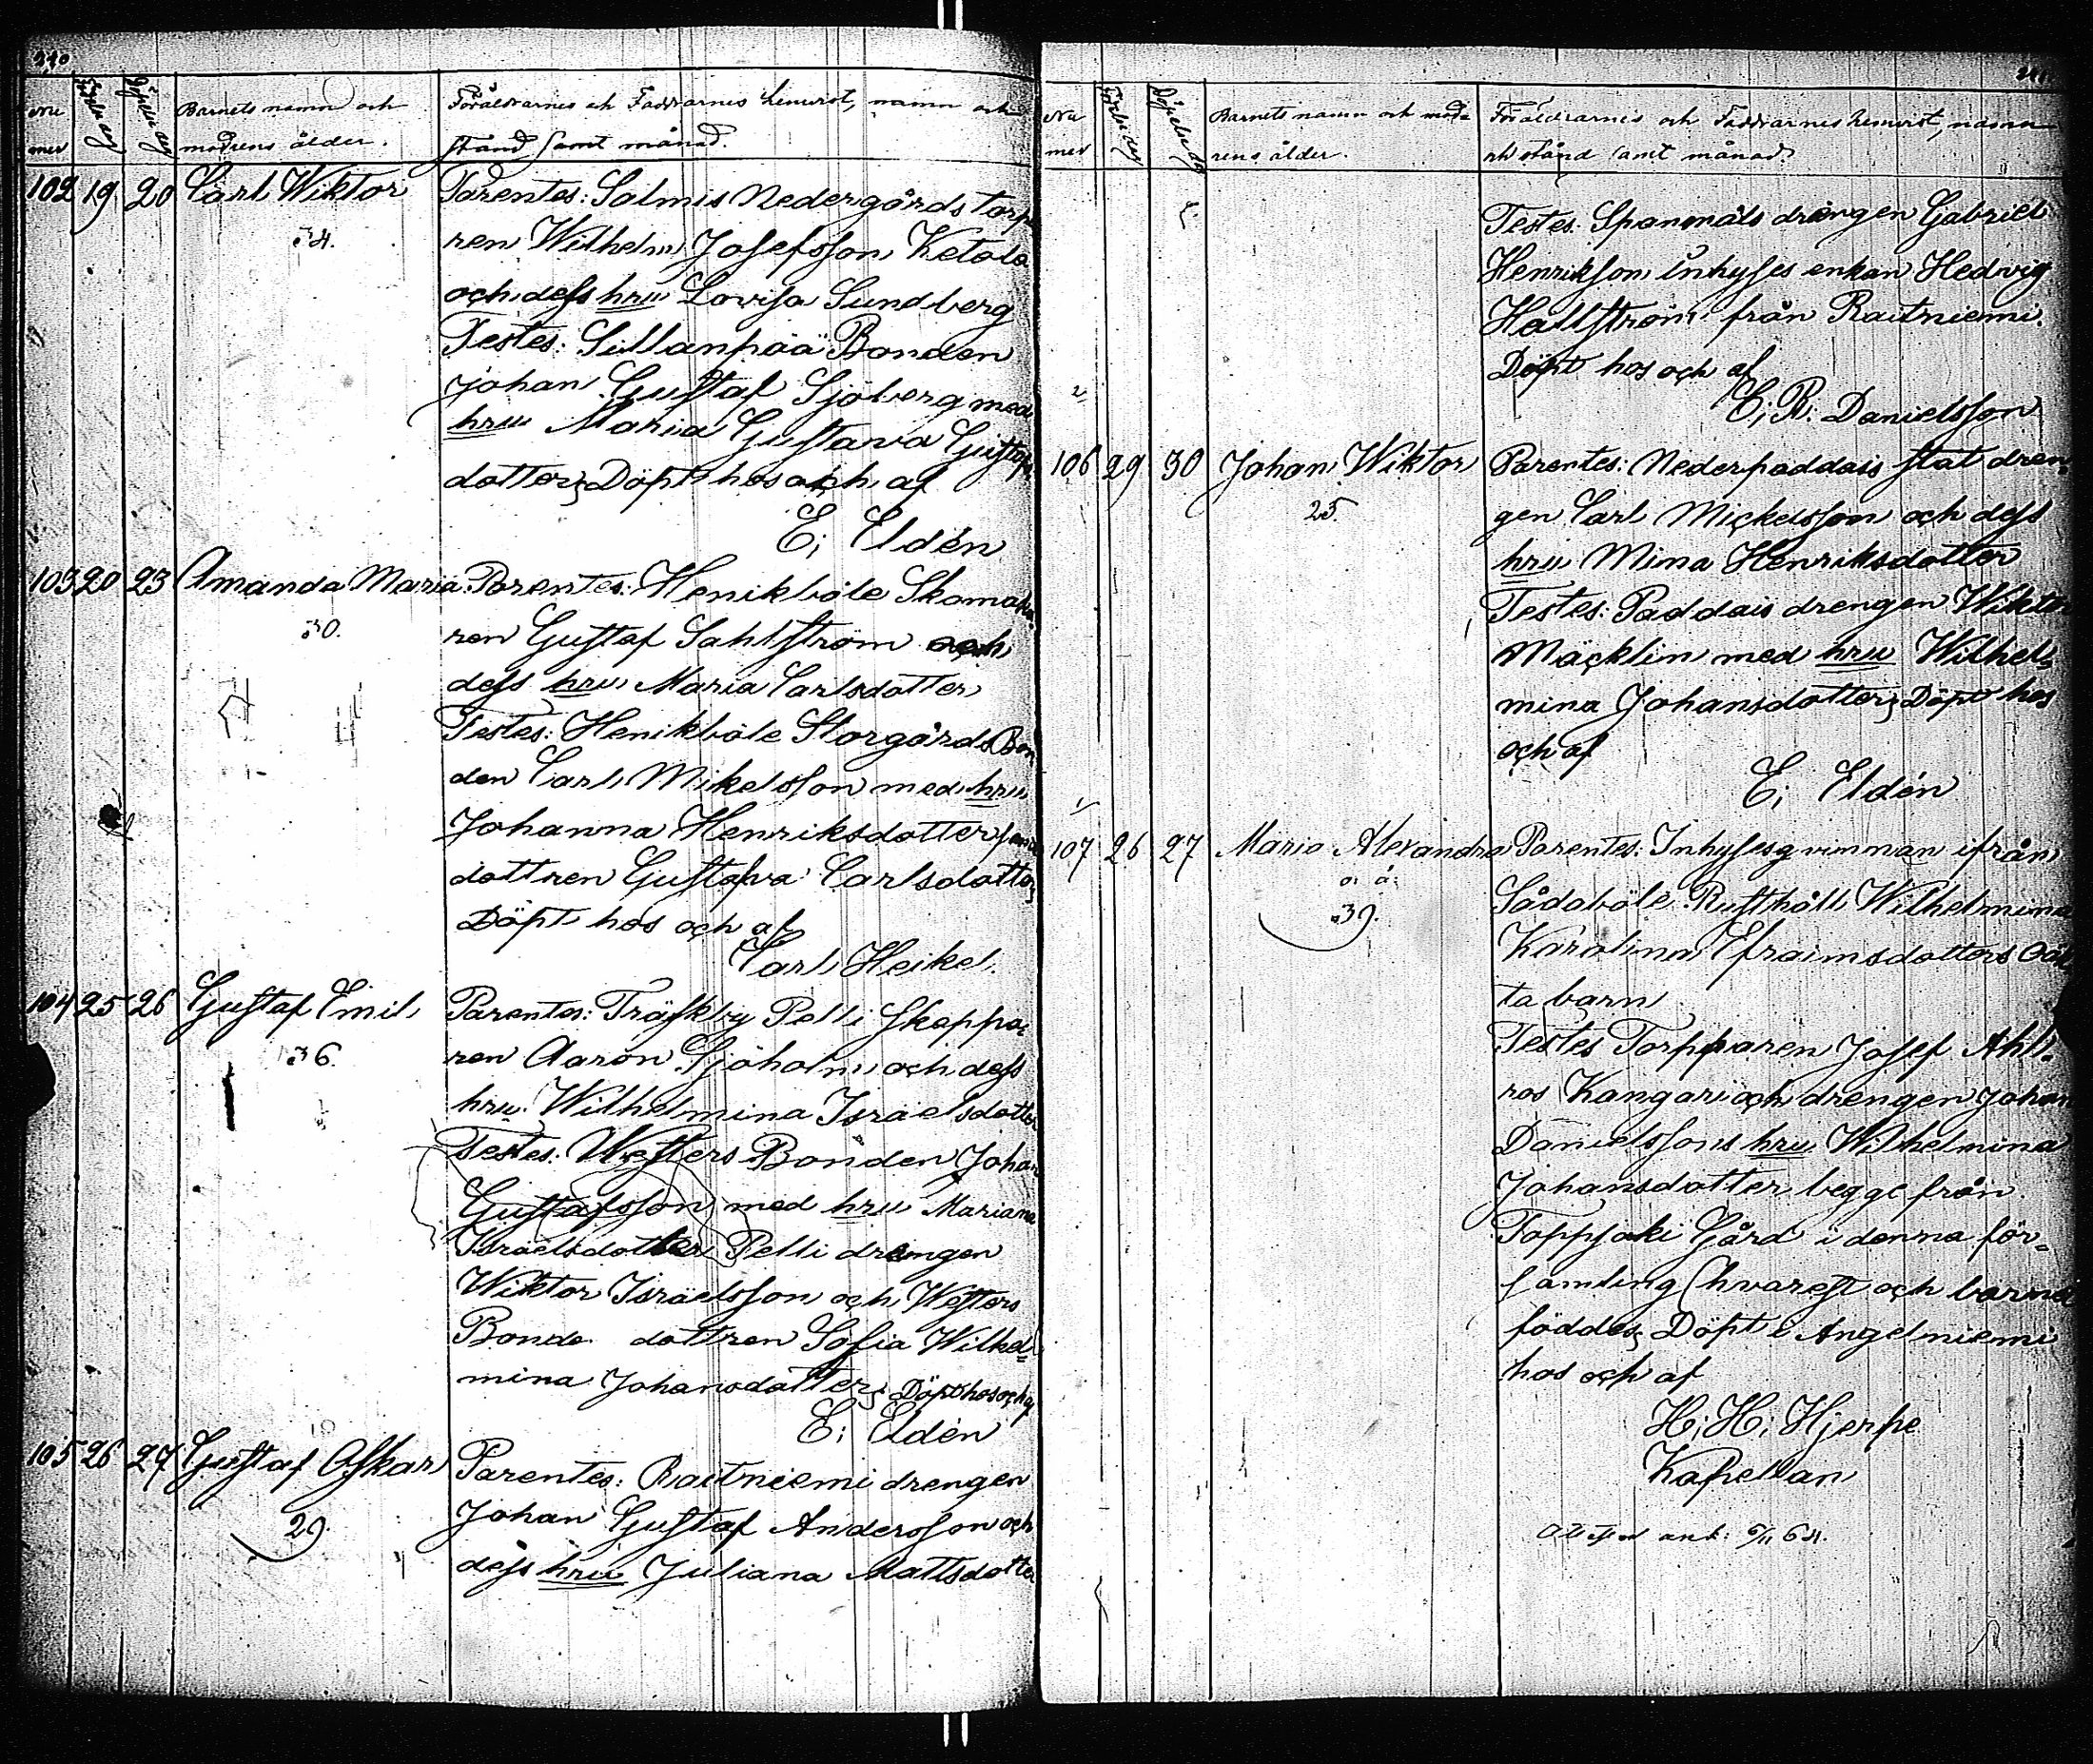 240
Nu
mer
Födelse dag
Döpelse dag
Barnets namn och
modrens ålder.
Föräldrarnes och Faddrarnes hemvist, namn och
stånd samt månad.
102 19 20 Carl Wiktor
34.
Parentes: Salmis Nedergårds torpa
ren Wilhelm Josefsson Ketola
och dess hru Lovisa Sundberg
Testes: Sillanpää Bonden
Johan Gustaf Sjöberg med
hru Maria Gustava Gustafs
dotter; Döpt hos och af
E; Eldén
103 20 23 Amanda Maria
30.
Parentes: Henikböle Skomaka
ren Gustaf Sahlström och
dess hru Maria Carlsdotter
Testes: Henikböle Storgårds Bon
den Carl Mikelsson med hru
Johanna Henriksdotter
dottren Gustafva Carlsdotter;
Döpt hos och af
Carl Heikel.
104 25 26 Gustaf Emil
36.
Parentes: Träskby Pelli Skeppa
ren Aaron Sjöholm och dess
hru Wilhelmina Israelsdotter
Testes: Westers Bonden Johan
Gustafsson med hru Mariana
Israelsdotter Pelli drengen
Wiktor Israelsson och Westers
Bonde dottren Sofia Wilhel=
mina Johansdotter; Döpt hos och af
E; Eldén
105 26 27 Gustaf Oskar
29.
Parentes: Raitniemi drengen
Johan Gustaf Andersson och
dess hru Juliana Mattsdotter
Nu
mer
Födelse dag
Döpelse dag
Barnets namn och mod
rens ålder.
Föräldrarnes och Faddrarnes hemvist, namn
och stånd samt månad.
Testes: Spanmåls drängen Gabriel
Henrikson inhyses enkan Hedvig
Hallström från Raitniemi.
Döpt hos och af
C; R: Danielsson
106 29 30 Johan Wiktor
25.
Parentes: Nederpaddais stat dren
gen Carl Mickelsson och dess
hru Mina Henriksdotter
Testes: Paddais drengen Wiktor
Mäcklin med hru Wilhel=
mina Johansdotter; Döpt hos
och af
E; Eldén
107 26 27 Maria Alexandra
o. ä.
39.
Parentes: Inhysesqvinnan ifrån
Sådaböle Rusthåll Wilhelmina
Karolina Efraimsdotters Oäk
ta barn
Testes Torpparen Josef Ahl=
ros Kangari och drengen Johan
Danielssons hru Wilhelmina
Johansdotter begge från
Toppjoki Gård i denna för=
samling (hvarest och barnet
föddes; Döpt i Angelniemi
hos och af
H; H; Hjerpe
Kapellan
Attest ank: 6/11 64.